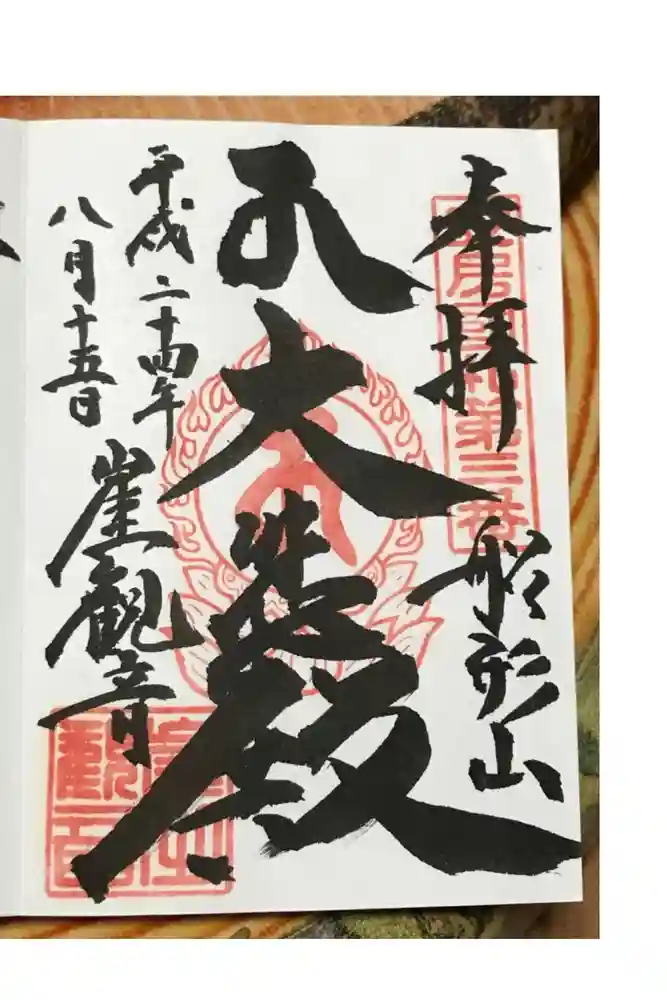 奉拝
船形山
安房国札第三番
大悲殿
平成二十四年
八月十五日
崖観音